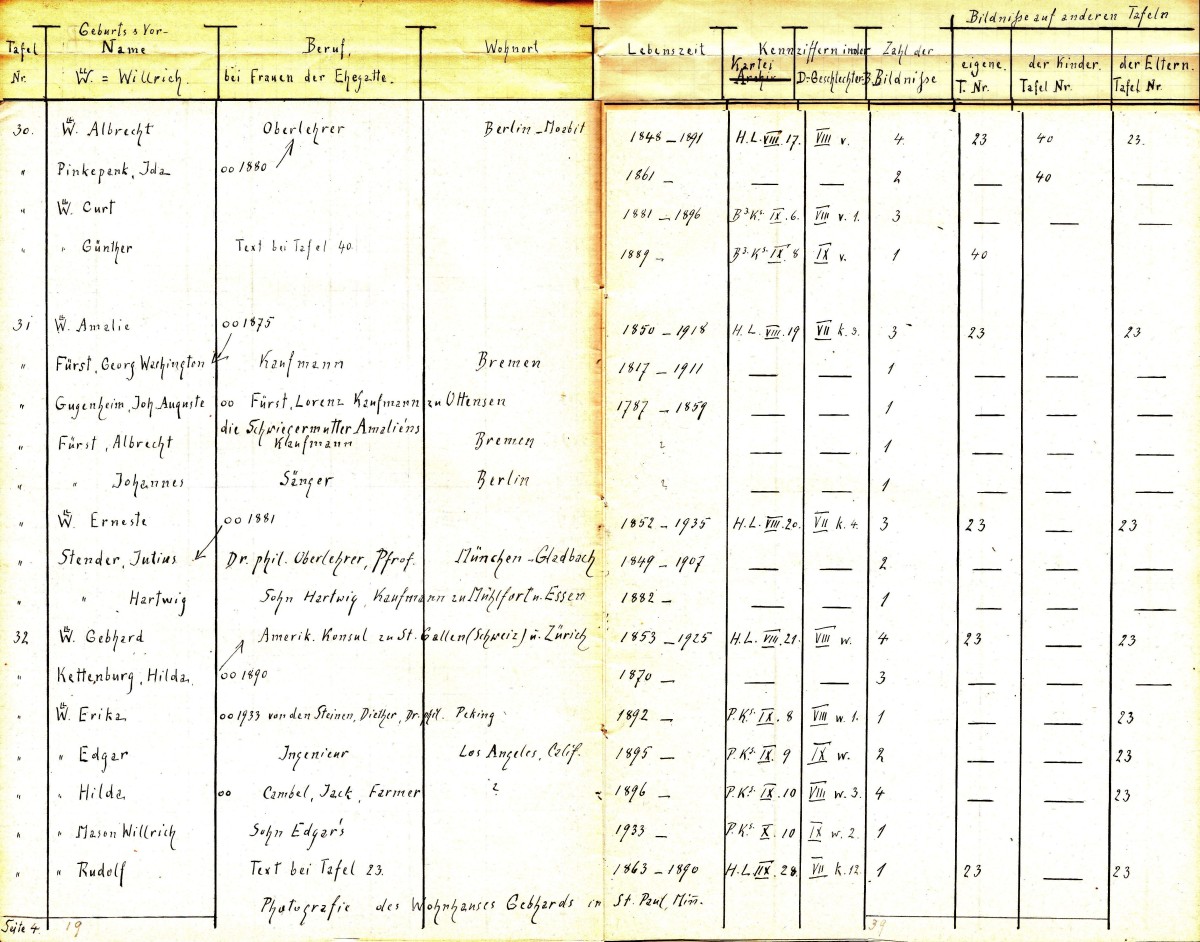 Tafel Nr. Geburts u Vor- Name W. = Willrich. Beruf, bei Frauen der Ehegatte. Wohnort Lebenszeit Kennziffern in der Kartei Archiv D. Geschlechter-B. Zahl der Bildniße Bildniße auf anderen Tafeln eigene. T. Nr. der Kinder. Tafel Nr. der Eltern. Tafel Nr.
30. W. Albrecht Oberlehrer Berlin-Moabit 1848-1891 H.L. VIII. 17. VIII v. 4. 23 40 23.
" Pinkepank, Ida oo 1880 1861 - — — 2 — 40 —
" W. Curt 1881-1896 B³.Kˢ. IX. 6. VIII v. 1. 3 — — —
" " Günther Text bei Tafel 40. 1889 - B³.Kˢ. IX. 8 IX v. 1 40
31 W. Amalie oo 1875 1850-1918 H.L. VIII. 19 VII k. 3. 3 23 23
" Fürst, Georg Washington Kaufmann Bremen 1817-1911 — — 1 — — —
" Gugenheim, Joh Auguste oo Fürst, Lorenz Kaufmann zu Ottensen 1787-1859 — — 1 — — —
die Schwiegermutter Amaliens
" Fürst, Albrecht Kaufmann Bremen ? — — 1 — — —
" " Johannes Sänger Berlin ? — — 1 — — —
" W. Erneste oo 1881 1852-1935 H.L. VIII. 20. VII k. 4. 3 23 — 23
" Stender, Julius Dr. phil. Oberlehrer, Pfrof. München-Gladbach 1849-1907 — — 2 — — —
" " Hartwig Sohn Hartwig, Kaufmann zu Mühlfort u. Essen 1882 - — — 1 — — —
32 W. Gebhard Amerik. Konsul zu St. Gallen (Schweiz) u. Zürich 1853-1925 H.L. VIII. 21. VIII w. 4 23 — 23
" Kettenburg, Hilda oo 1890 1870 - — — 3 — — —
" W. Erika oo 1933 von den Steinen, Diether, Dr. phil. Peking 1892 - P.Kˢ. IX. 8 VIII w. 1. 1 — — 23
" " Edgar Ingenieur Los Angeles, Calif. 1895 - P.Kˢ. IX. 9 IX w. 2 — — 23
" " Hilda oo Cambel, Jack, Farmer ? 1896 - P.Kˢ. IX. 10 VIII w. 3. 4 — — 23
" " Mason Willrich Sohn Edgar's 1933 - P.Kˢ. X. 10 IX w. 2. 1
" " Rudolf Text bei Tafel 23. 1863-1890 H.L. IIX. 28. VII k. 12. 1 23 — 23
Photografie des Wohnhauses Gebhards in St. Paul, Min.
Seite 4. 19 39